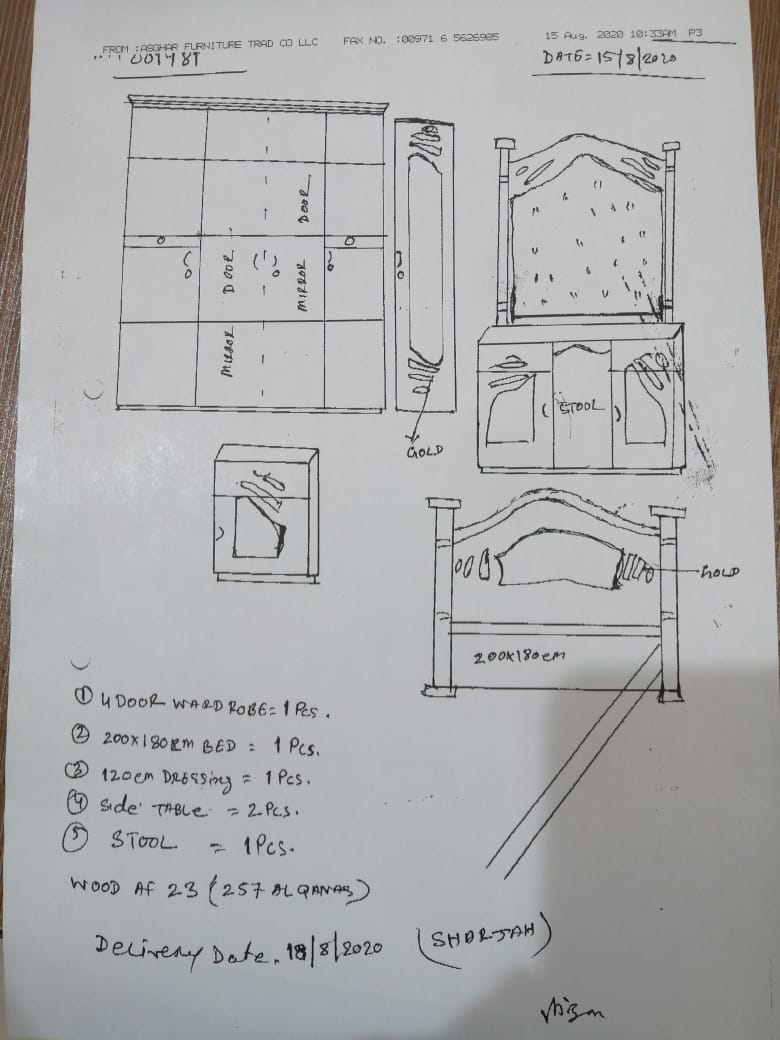 FROM :ASGHAR FURNITURE TRAD CO LLC FAX NO. :00971 6 5626985 15 Aug. 2020 10:33AM P3
DATE=15/8/2020
DOOR
MIRROR
DOOR
MIRROR
STOOL
GOLD
GOLD
200x180cm
① 4 DOOR WARDROBE = 1 Pcs.
② 200x180cm BED = 1 Pcs.
③ 120cm DRESSing = 1 Pcs.
④ Side TABLE = 2 Pcs.
⑤ STOOL = 1 Pcs.
WOOD AF 23 (257 AL QANAS)
Delivery Date. 18/8/2020 (SHARJAH)